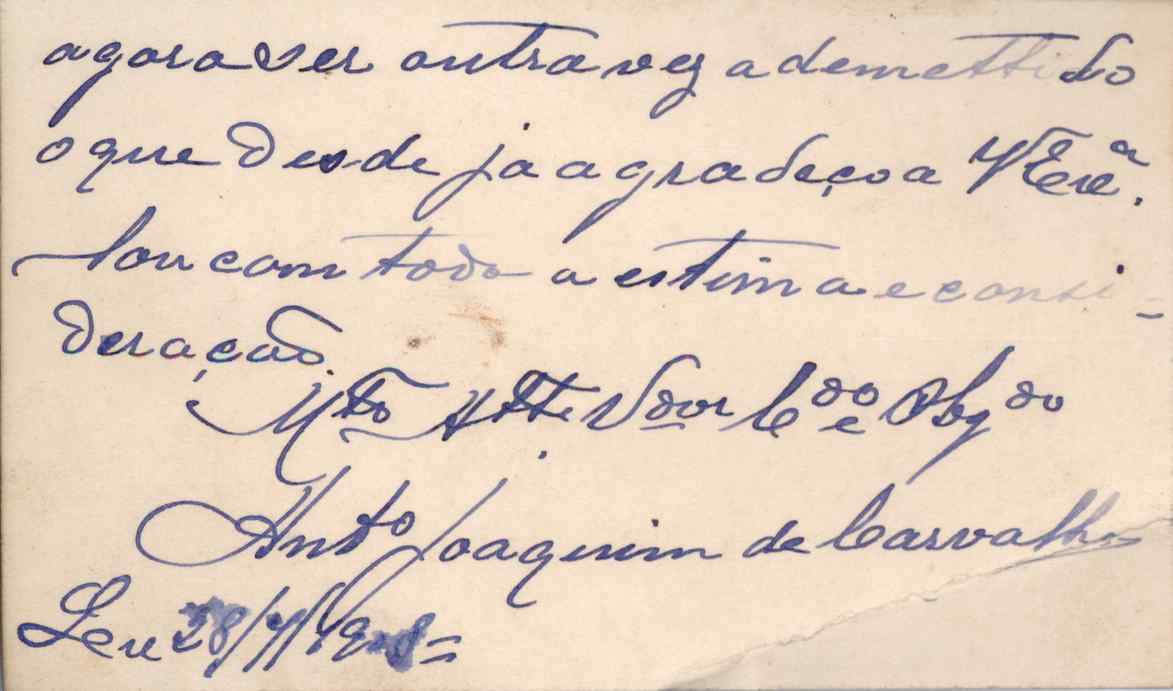 agora ser outra vezademettido
o que desde ja agradeço a VExª.
Sou com toda a estima e consi=
deração.
Mto Atte Vdor Cdo e Obgdo
Anto Joaquim de Carvalho
28/7/19